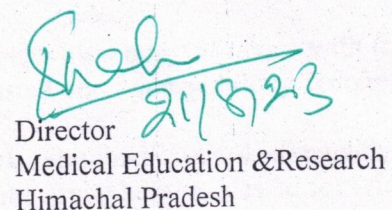 21/8/23
Director
Medical Education &Research
Himachal Pradesh